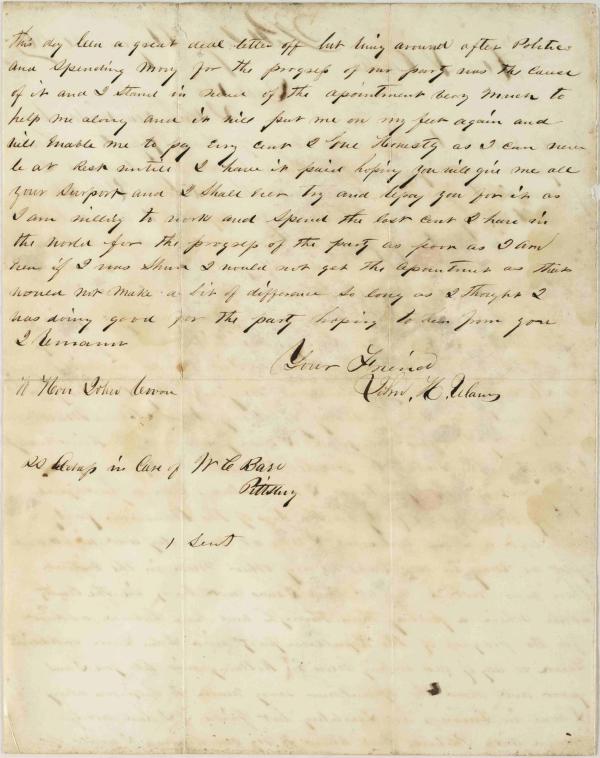 this day been a great deal better off but being around after Politics
and Spending Mony for the progress of our party was the cause
of it and I Stand in need of the apointment very Much to
help me along and it will put me on my feet again and
will Enable me to pay Evry cent I owe Honestly as I can never
be at Rest untill I have it paid hoping you will give me all
your Surport and I Shall Ever try and repay you for it as
I am willing to work and Spend the last cent I have in
the world for the progress of the party as poor as I am
Even if I was Shure I would not get the apointment as that
would not Make a bit of difference So long as I thought I
was doing good for the party hoping to hear from you
I Remain
Your Freind
John. H.
To Hon John Covode
in Care of W C Barr
Pittsburg
1 Sent